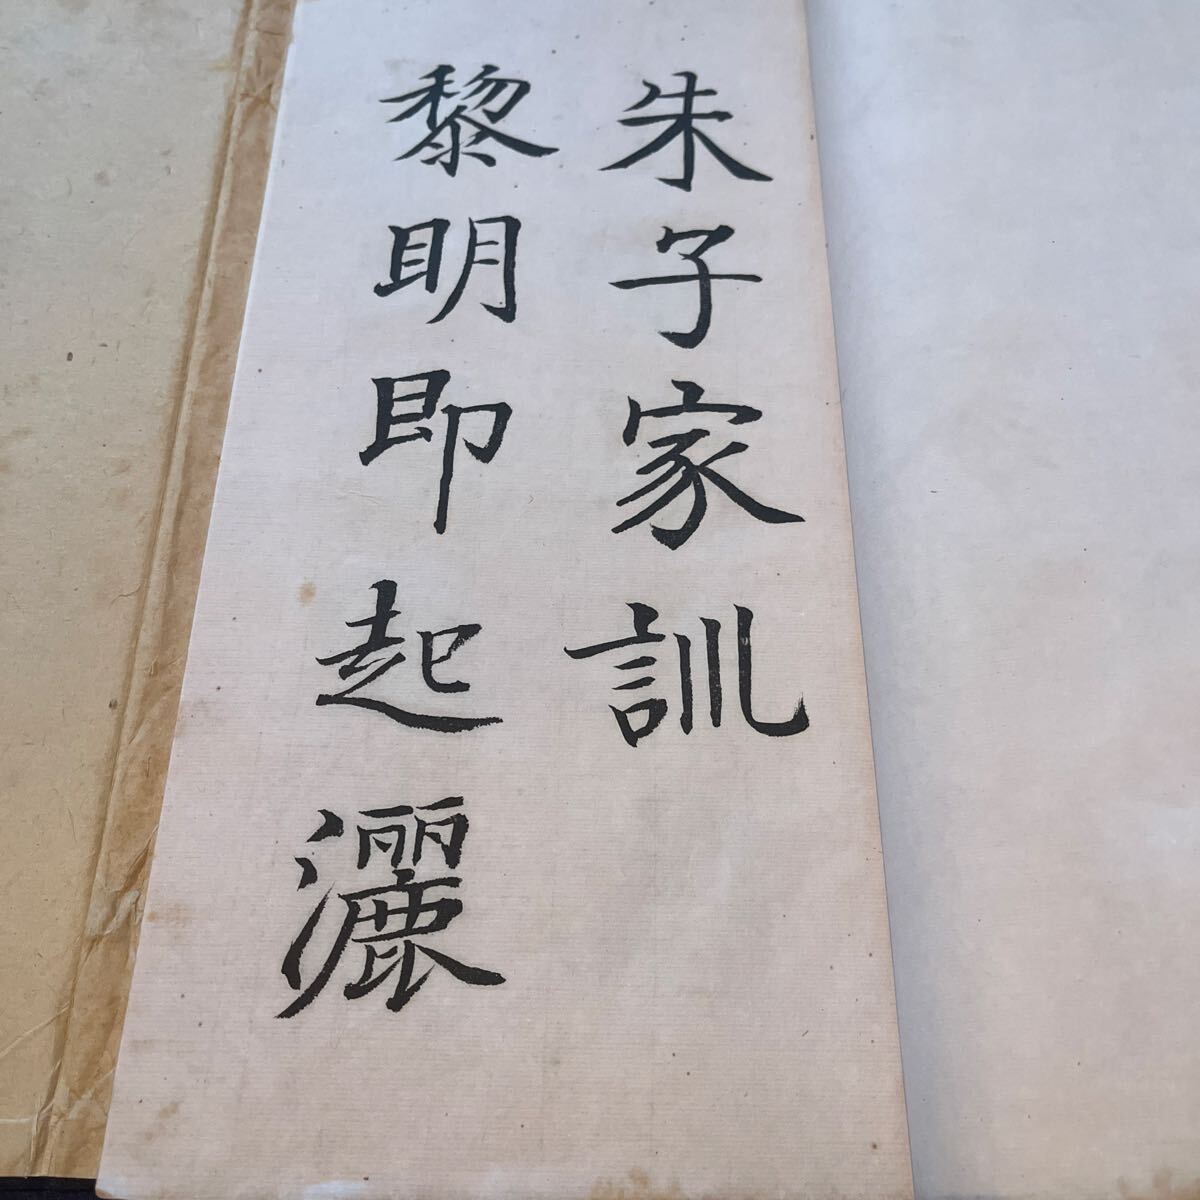 朱子家訓
黎明即起灑